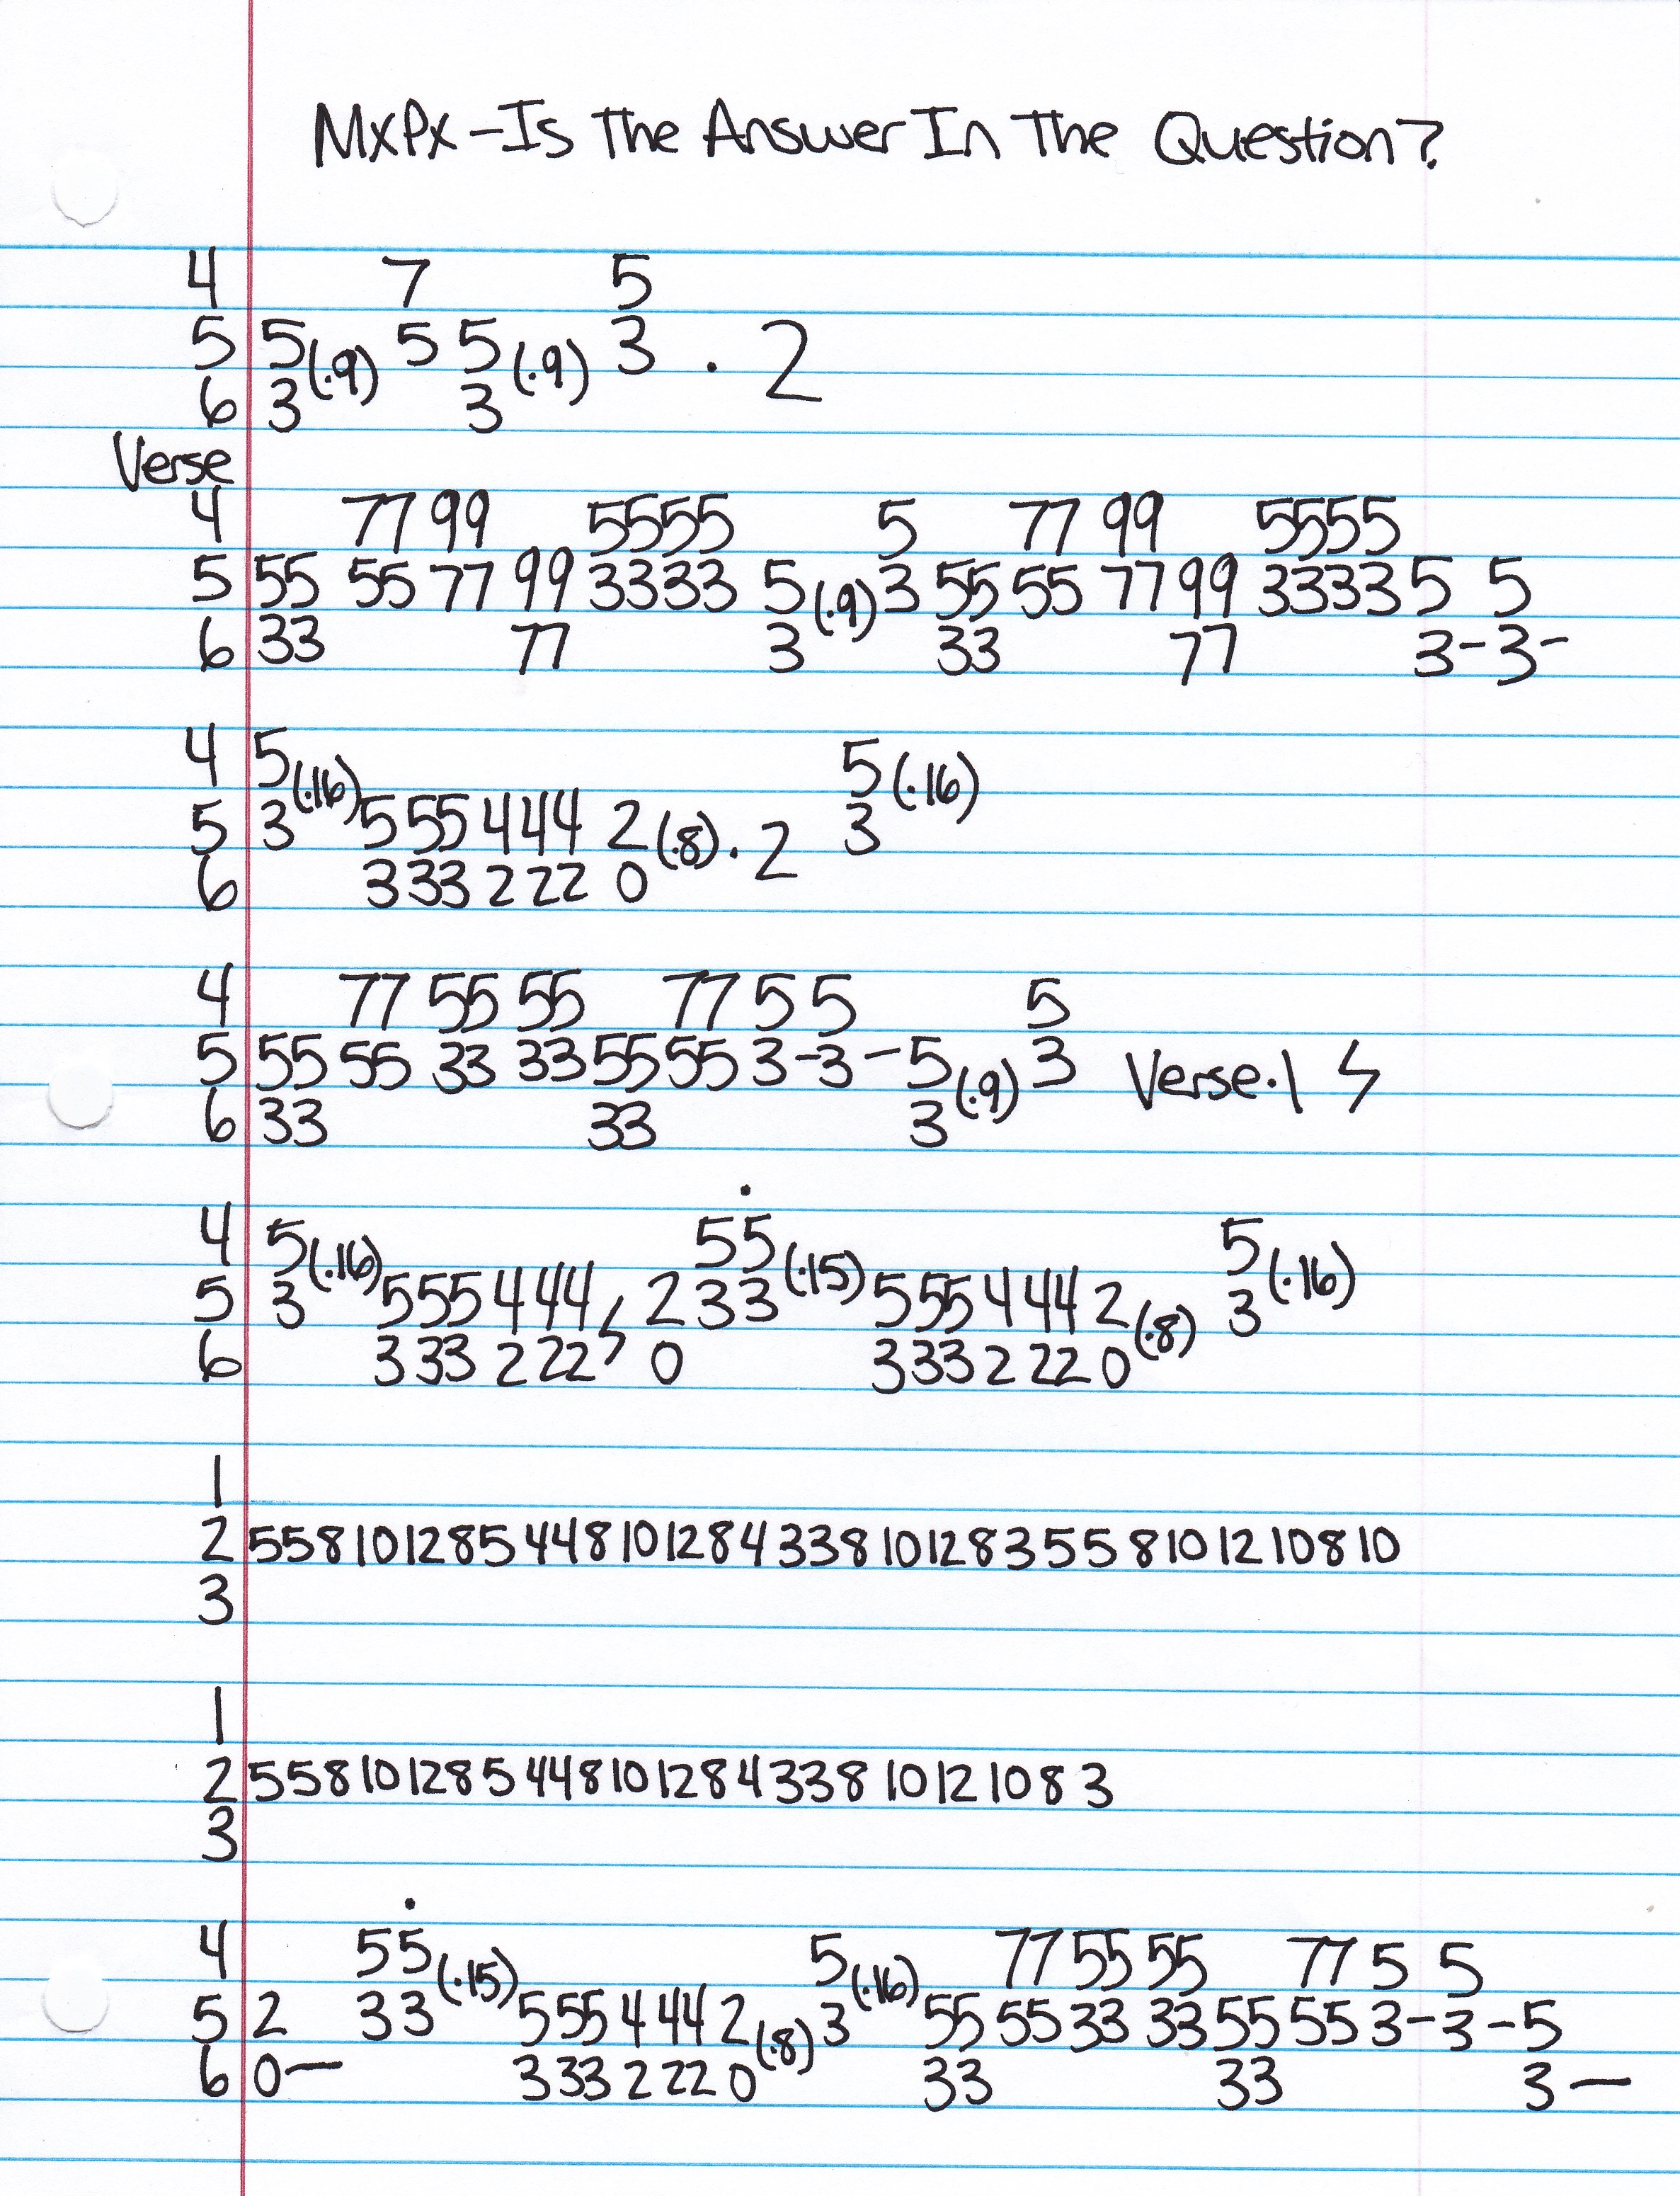 MxPx-Is The Answer In The Question?
4 7 5
5 5(.9) 5 5(.9) 3 . 2
6 3 3
Verse
4 77 99 5555 5 77 99 5555
5 55 55 77 99 3333 5(.9) 3 55 55 77 99 3333 5 5
6 33 77 3 33 77 3-3-
4 5(.16) 5(.16)
5 3 5 55 444 2(.8).2 3
6 3 33 2 22 0
4 77 55 55 77 5 5 5
5 55 55 33 33 55 55 3-3-5(.9) 3 Verse.1
6 33 33 3
4 5(.16) 55(.15) 5(.16)
5 3 555 444 2 33 555 444 2(.8) 3
6 3 33 2 22 0 333 2 22 0
1
2 5 5 8 10 12 8 5 4 4 8 10 12 8 4 3 3 8 10 12 8 3 5 5 8 10 12 10 8 10
3
1
2 5 5 8 10 12 8 5 4 4 8 10 12 8 4 3 3 8 10 12 10 8 3
3
4 55(.15) 5(.16) 77 55 55 77 5 5
5 2 33 555 444 2(.8) 3 55 55 33 33 55 55 3-3-5
6 0— 333 2 22 0 33 33 3—